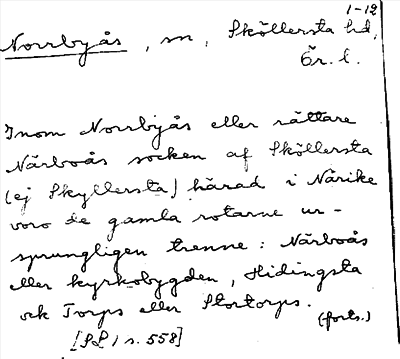 1-12
Norrbyås, sn, Sköllersta hd,
Ör. l.
Inom Norrbyås eller rättare
Närboås socken af Sköllersta
(ej Skyllersta) härad i Närike
voro de gamla rotarne ur-
sprungligen trenne: Närboås
eller kyrkobygden, Hidingsta
och Torps eller Stortorps.
(forts.)
[SL 1 s. 558]